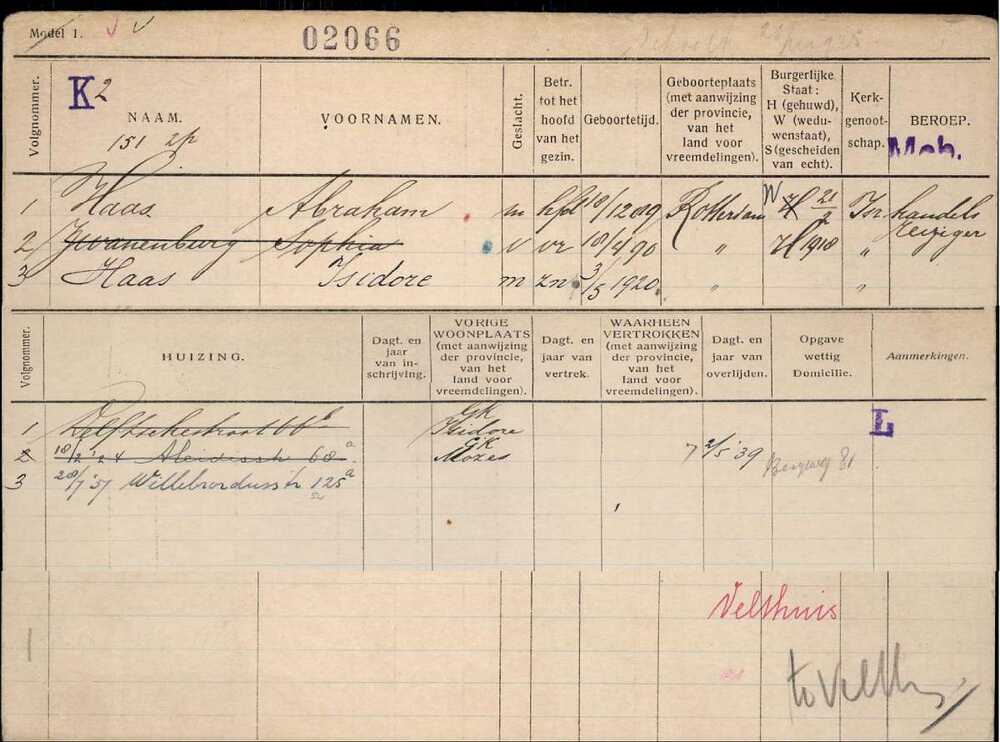 Model 1.
02066
Volgnommer.
K 2
NAAM.
151 2p
VOORNAMEN.
Geslacht.
Betr. tot het hoofd van het gezin.
Geboortetijd.
Geboorteplaats (met aanwijzing der provincie, van het land voor vreemdelingen).
Burgerlijke Staat: H (gehuwd), W (weduwenstaat), S (gescheiden van echt).
Kerkgenootschap.
BEROEP.
Moh.
1 Haas Abraham m hfd 10/12 89 Rotterdam W H 21/2 Isr handels
reiziger
2 Zwanenburg Sophia v vr 18/4 90 " H 1918 "
3 Haas Isidore m zn 3/5 1920 " "
Volgnommer.
HUIZING.
Dagt. en jaar van inschrijving.
VORIGE WOONPLAATS (met aanwijzing der provincie, van het land voor vreemdelingen).
Dagt. en jaar van vertrek.
WAARHEEN VERTROKKEN (met aanwijzing der provincie, van het land voor vreemdelingen).
Dagt. en jaar van overlijden.
Opgave wettig Domicilie.
Aanmerkingen.
1 Delftschestraat 66b GK Isidore
L
2 18/2 '24 Aleidisstr 68a GK Mozes 2/5 '39 Bergweg 81
3 28/7 '37 Willebrordusstr 125a
Velthuis
to Velth